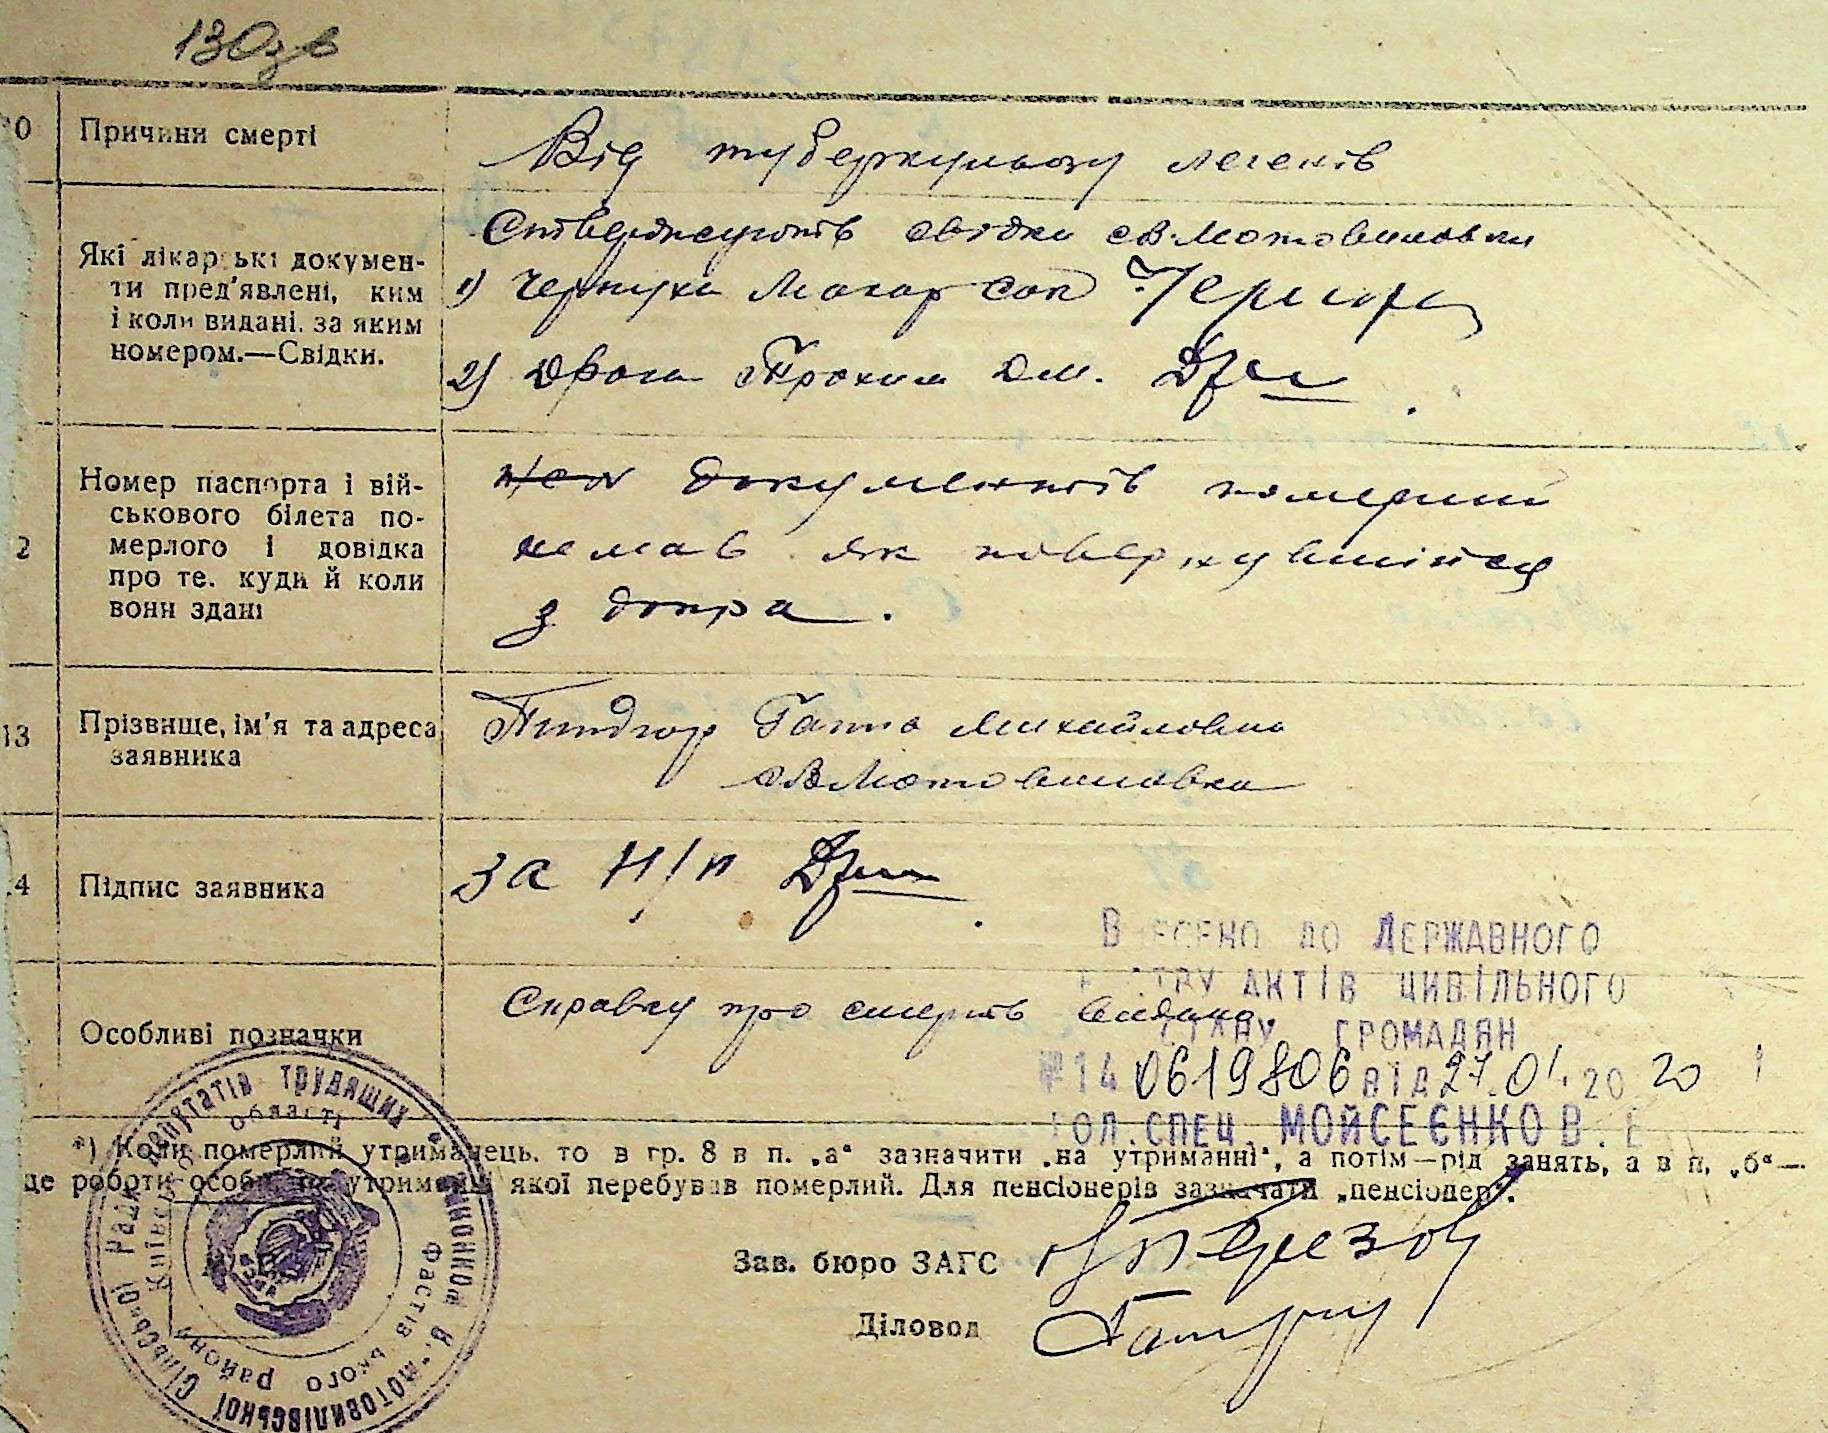 130зв
10 Причини смерті
Від туберкульозу легенів
Які лікарські докумен-
ти пред'явлені, ким
і коли видані. за яким
номером.—Свідки.
Стверджують свідки с В. Мотовиловки
1) Черnуха Макар Сап
2) Дрога Трохим Дм.
2 Номер паспорта і вій-
ськового білета по-
мерлого і довідка
про те. куди й коли
вони здані
документів померший
немав як повернувшійся
з допра.
13 Прізвище, ім'я та адреса
заявника
Ганна Михайловна
с В Мотовиловка
14 Підпис заявника
за н/п
Особливі позначки
Справку про смерть видано
ВНЕСЕНО ДО ДЕРЖАВНОГО
РЕЄСТРУ АКТІВ ЦИВІЛЬНОГО
СТАНУ ГРОМАДЯН
№14 0619806 від 27.01.2020
ГОЛ.СПЕЦ. МОЙСЕЄНКО В.
*) Коли померлий утриманець. то в гр. 8 в п. „а“ зазначити „на утриманні“, а потім—рід занять, а в п. „б“—
де роботи особи, на утриманні якої перебував померлий. Для пенсіонерів зазначати „пенсіонер“.
Зав. бюро ЗАГС
Діловод
Виконком В.-Мотовилівської Сільської Ради депутатів трудящих
Фастівського району Київської області
УРСР